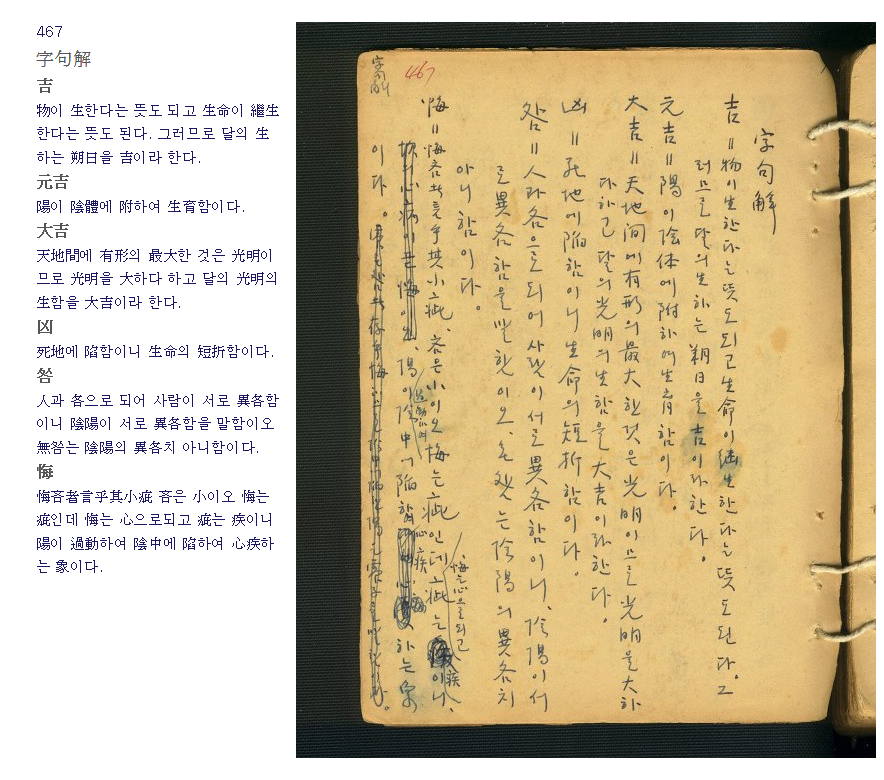 467
字句解
吉
物이 生한다는 뜻도 되고 生命이 繼生
한다는 뜻도 된다. 그러므로 달의 生
하는 朔日을 吉이라 한다.
元吉
陽이 陰體에 附하여 生育함이다.
大吉
天地間에 有形의 最大한 것은 光明이
므로 光明을 大하다 하고 달의 光明의
生함을 大吉이라 한다.
凶
死地에 陷함이니 生命의 短折함이다.
咎
人과 各으로 되어 사람이 서로 異各함
이니 陰陽이 서로 異各함을 말함이오
無咎는 陰陽의 異各치 아니함이다.
悔
悔吝者言乎其小疵 吝은 小이오 悔는
疵인데 悔는 心으로되고 疵는 疾이니
陽이 過動하여 陰中에 陷하여 心疾하
는 象이다.
字句解
467
字句解
吉=物이 生한다는 뜻도 되고 生命이 繼生한다는 뜻도 된다. 그
러므로 달의 生하는 朔日을 吉이라 한다.
元吉=陽이 陰体에 附하여 生育함이다.
大吉=天地间에 有形의 最大한 것은 光明이므로 光明을 大하
다하고 달의 光明의 生함을 大吉이라 한다.
凶=死地에 陷함이니 生命의 短折함이다.
咎=人과 各으로 되어 사람이 서로 異各함이니, 陰陽이 서
로 異各함을 말함이오, 无咎는 陰陽의 異各치
아니함이다.
悔=悔吝者言乎其小疵, 吝은 小이오 悔는 疵인데 疵는 疾이니,
悔는 心으로 되고
陽이 陰中에 陷
過動하여
心疾
하는 象
이다.